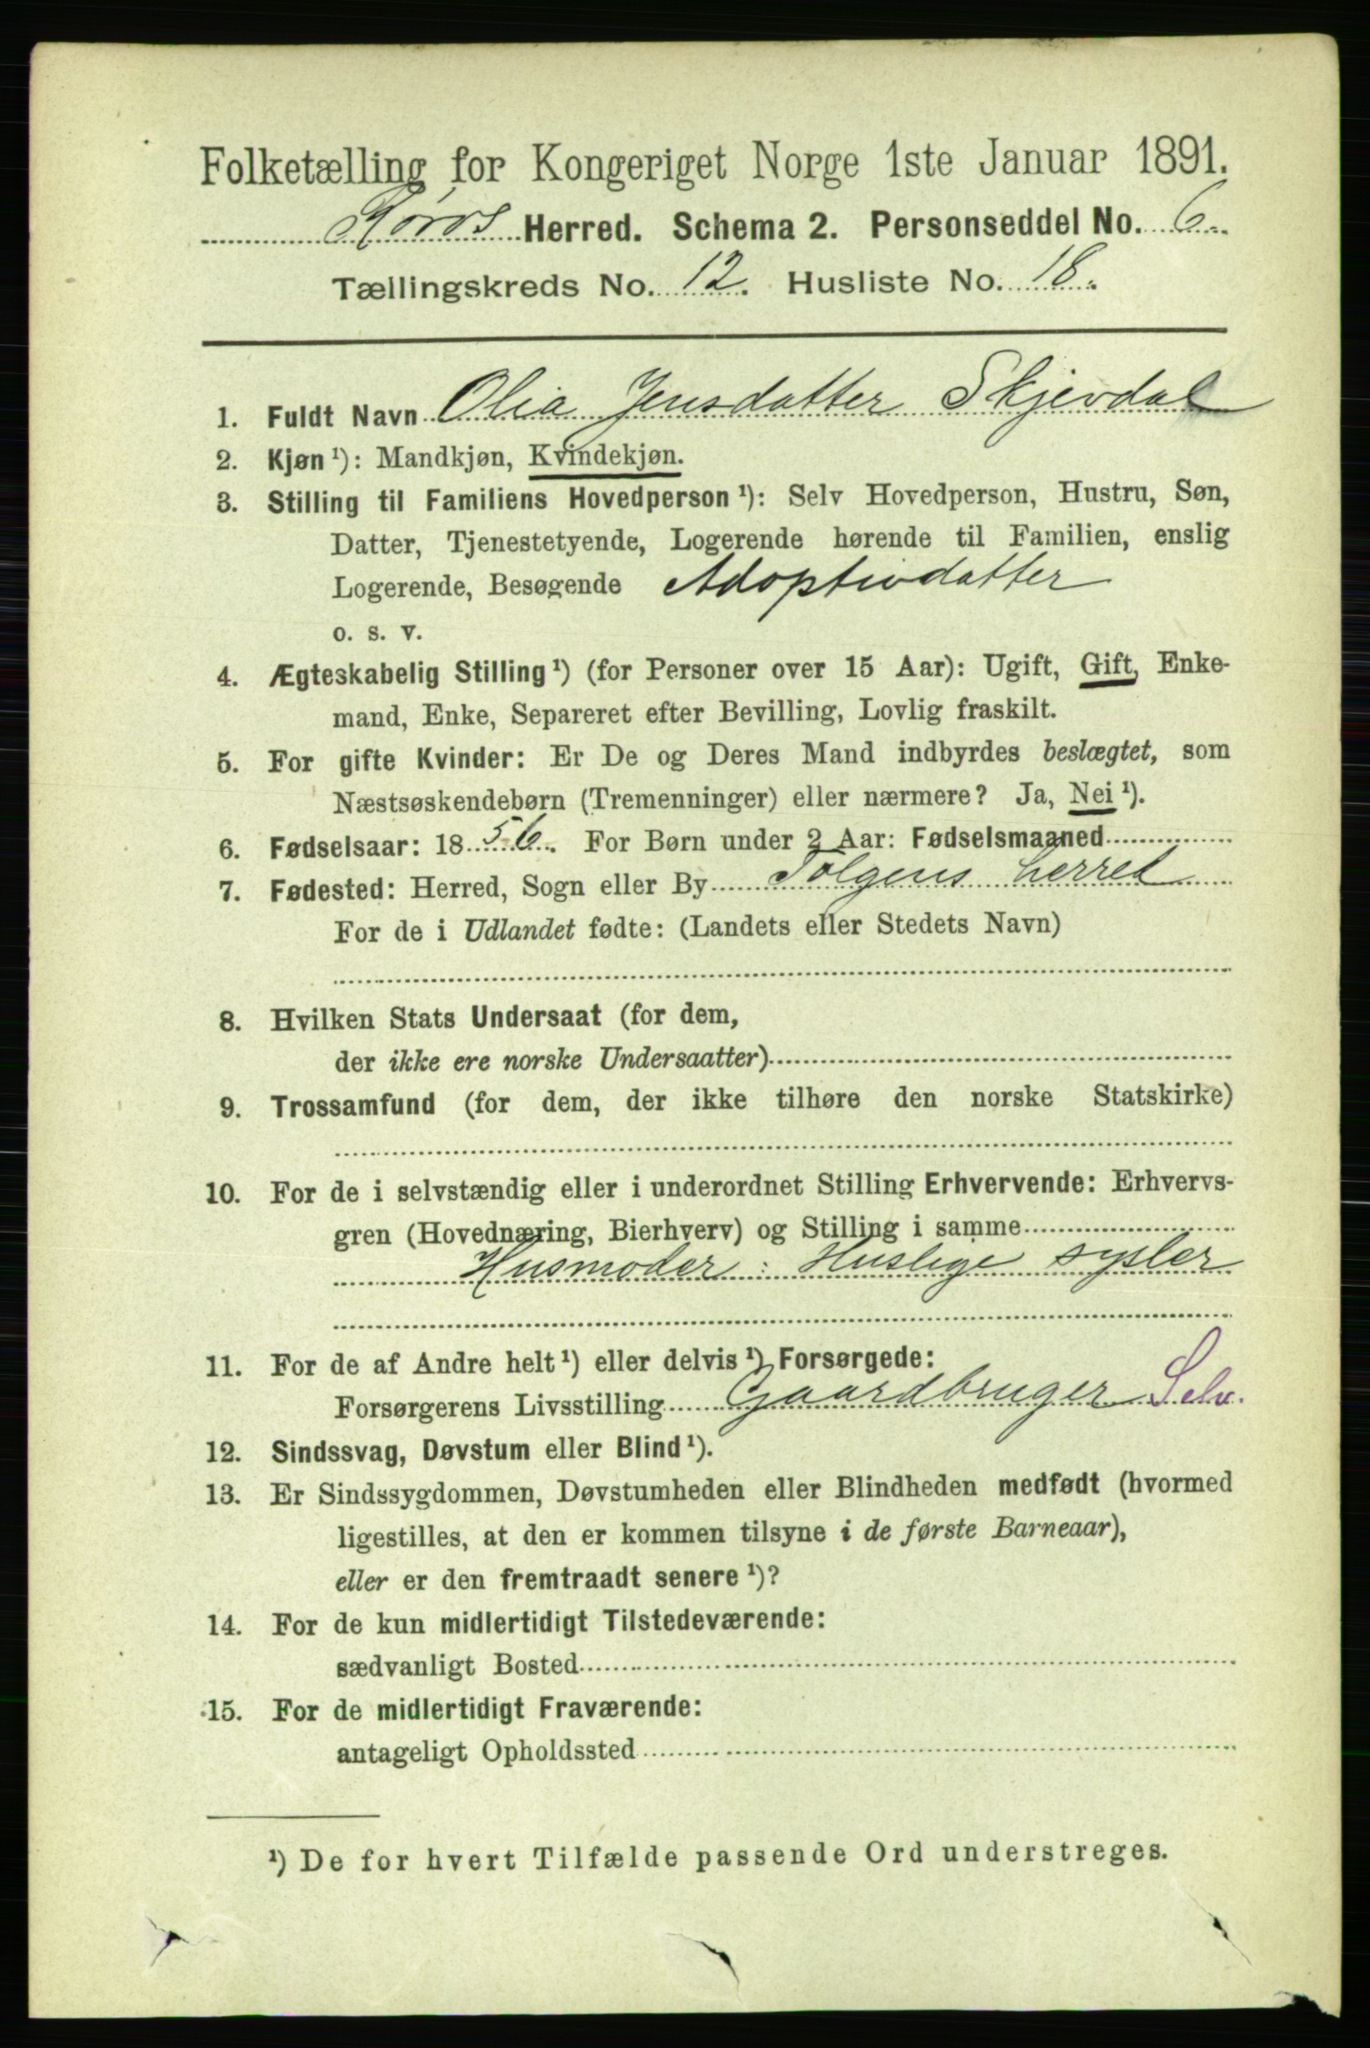 Folketælling for Kongeriget Norge 1ste Januar 1891.
Røros Herred. Schema 2. Personseddel No. 6.
Tællingskreds No. 12. Husliste No. 18.
1. Fuldt Navn Olia Jensdatter Skjevdal
2. Kjøn¹): Mandkjøn, Kvindekjøn.
3. Stilling til Familiens Hovedperson¹): Selv Hovedperson, Hustru, Søn,
Datter, Tjenestetyende, Logerende hørende til Familien, enslig
Logerende, Besøgende Adoptivdatter
o. s. v.
4. Ægteskabelig Stilling¹) (for Personer over 15 Aar): Ugift, Gift, Enke-
mand, Enke, Separeret efter Bevilling, Lovlig fraskilt.
5. For gifte Kvinder: Er De og Deres Mand indbyrdes beslægtet, som
Næstsøskendebørn (Tremenninger) eller nærmere? Ja, Nei¹).
6. Fødselsaar: 1856. For Børn under 2 Aar: Fødselsmaaned
7. Fødested: Herred, Sogn eller By Tolgens herred
For de i Udlandet fødte: (Landets eller Stedets Navn)
8. Hvilken Stats Undersaat (for dem,
der ikke ere norske Undersaatter)
9. Trossamfund (for dem, der ikke tilhøre den norske Statskirke)
10. For de i selvstændig eller i underordnet Stilling Erhvervende: Erhvervs-
gren (Hovednæring, Bierhverv) og Stilling i samme
Husmoder: Huslige sysler
11. For de af Andre helt¹) eller delvis¹) Forsørgede:
Forsørgerens Livsstilling Gaardbruger Selv.
12. Sindssvag, Døvstum eller Blind¹).
13. Er Sindssygdommen, Døvstumheden eller Blindheden medfødt (hvormed
ligestilles, at den er kommen tilsyne i de første Barneaar),
eller er den fremtraadt senere¹)?
14. For de kun midlertidigt Tilstedeværende:
sædvanligt Bosted
15. For de midlertidigt Fraværende:
antageligt Opholdssted
¹) De for hvert Tilfælde passende Ord understreges.